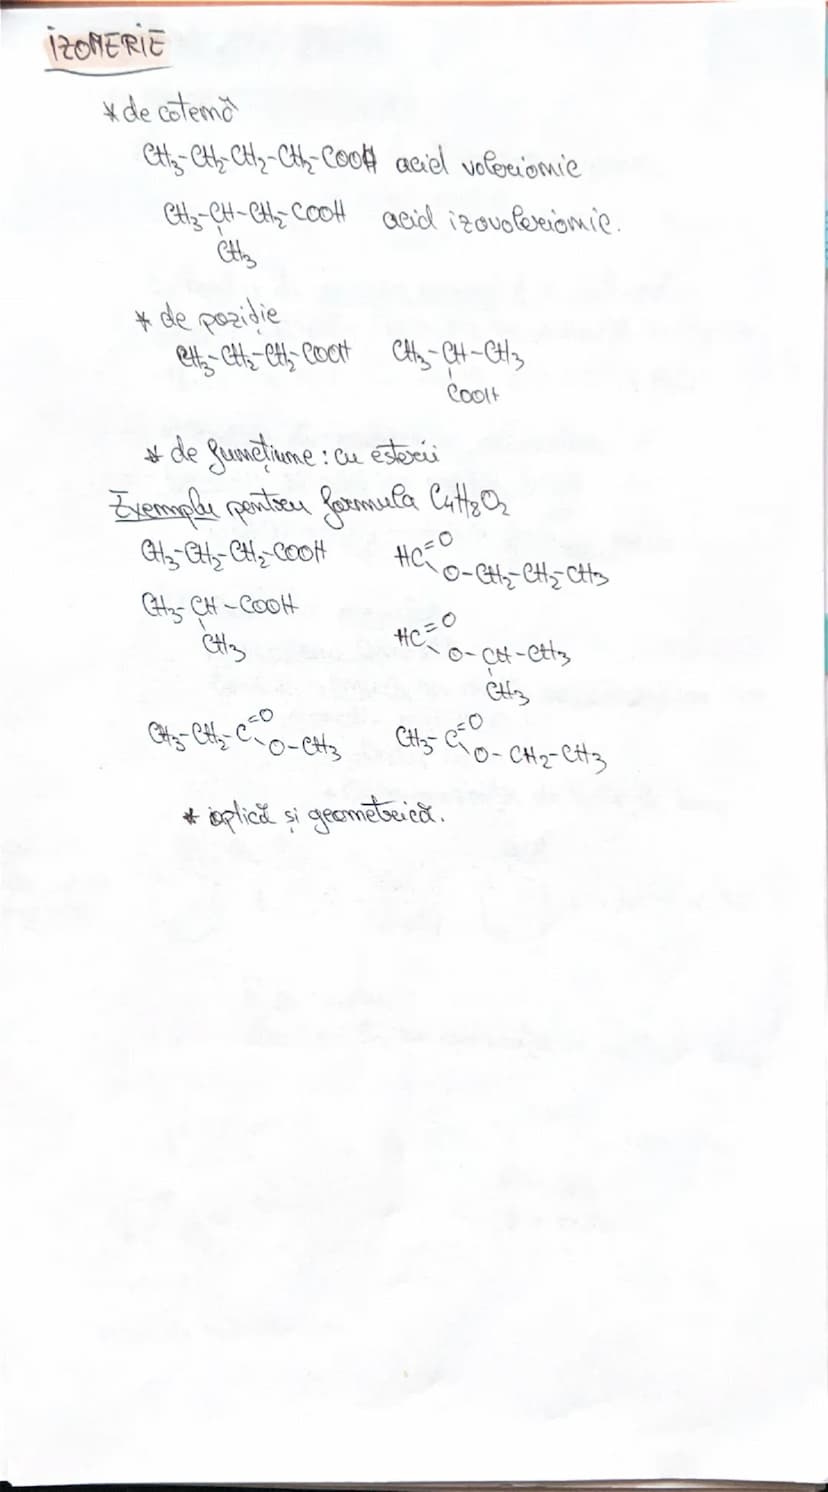 IZOMERIE
* de catenă
CH3-CH2-CH2-CH2-COOH acid valerianic
CH3-CH-CH2-COOH acid izovalerianic.
CH3
* de poziție
CH3-CH2-CH2-COOH CH3-CH-CH3
COOH
* de funcțiune: cu esterii
Exemplu pentru formula C4H8O2
CH3-CH2-CH2-COOH HC=O
O-CH2-CH2-CH3
CH3-CH-COOH
HC=O
CH3 O-CH-CH3
CH3
CH3-CH2-C=O CH3-C=O
O-CH3 O-CH2-CH3
* optică și geometrică.